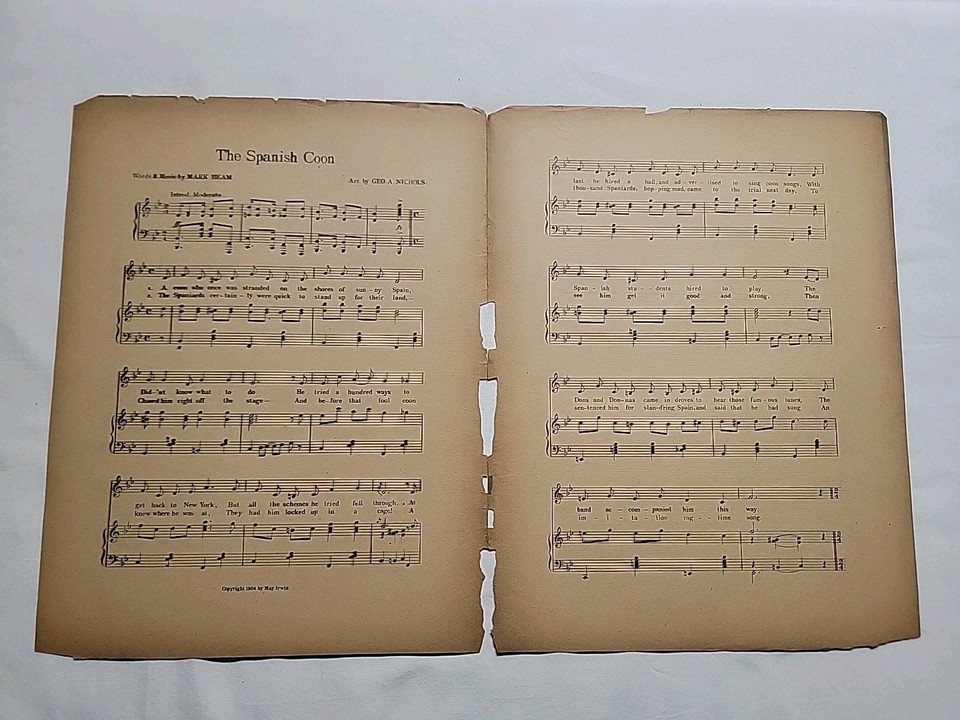 The Spanish Coon
Words & Music by MARK BEAM
Arr. by GEO A. NICHOLS.
Introd. Moderato
1. A coon who once was stranded on the shores of sun-ny Spain,
2. The Spaniards cer-tain-ly were quick to stand up for their land,
Did-'nt know what to do He tried a hundred ways to
Chased him right off the stage— And be-fore that fool coon
get back to New York, But all the schemes he tried fell through. At
knew where he was at, They had him locked up in a cage! A
Copyright 1904 by May Irwin
last he hired a hall, and ad-ver-tised to sing coon songs, With
thou-sand Spaniards, hop-ping mad, came to the trial next day, To
Span-ish stu-dents hired to play. The
see him get it good and strong, Then
Dons and Don-nas came in droves to hear those fam-ous tunes, The
sen-tenced him for slan-d'ring Spain, and said that he had song An
band ac-com-panied him this way.
im-i-ta-tion rag-time song.